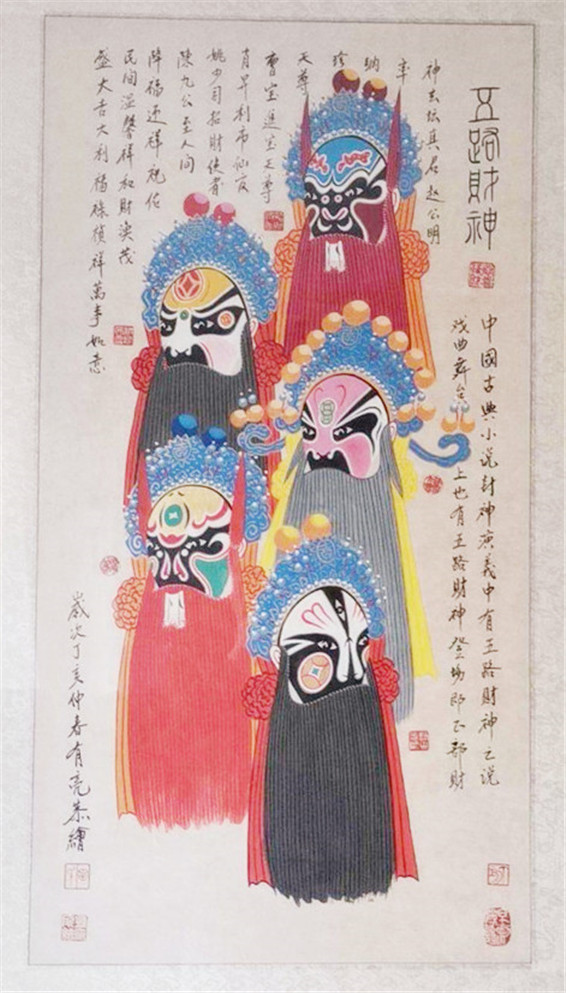 五路財神
中國古典小说封神演義中有五路財神之说
戏曲舞台
上也有五路财神登場即正部財
神玄坛真君赵公明
率
纳
珍
天尊
曹宝進宝天尊
肖昇利市仙官
姚少司招財使者
陳九公至人间
降福迎祥祝佑
民间温馨祥和財源茂
盛大吉大利福禄祯祥萬事如意
歲次丁亥仲春有亮恭繪